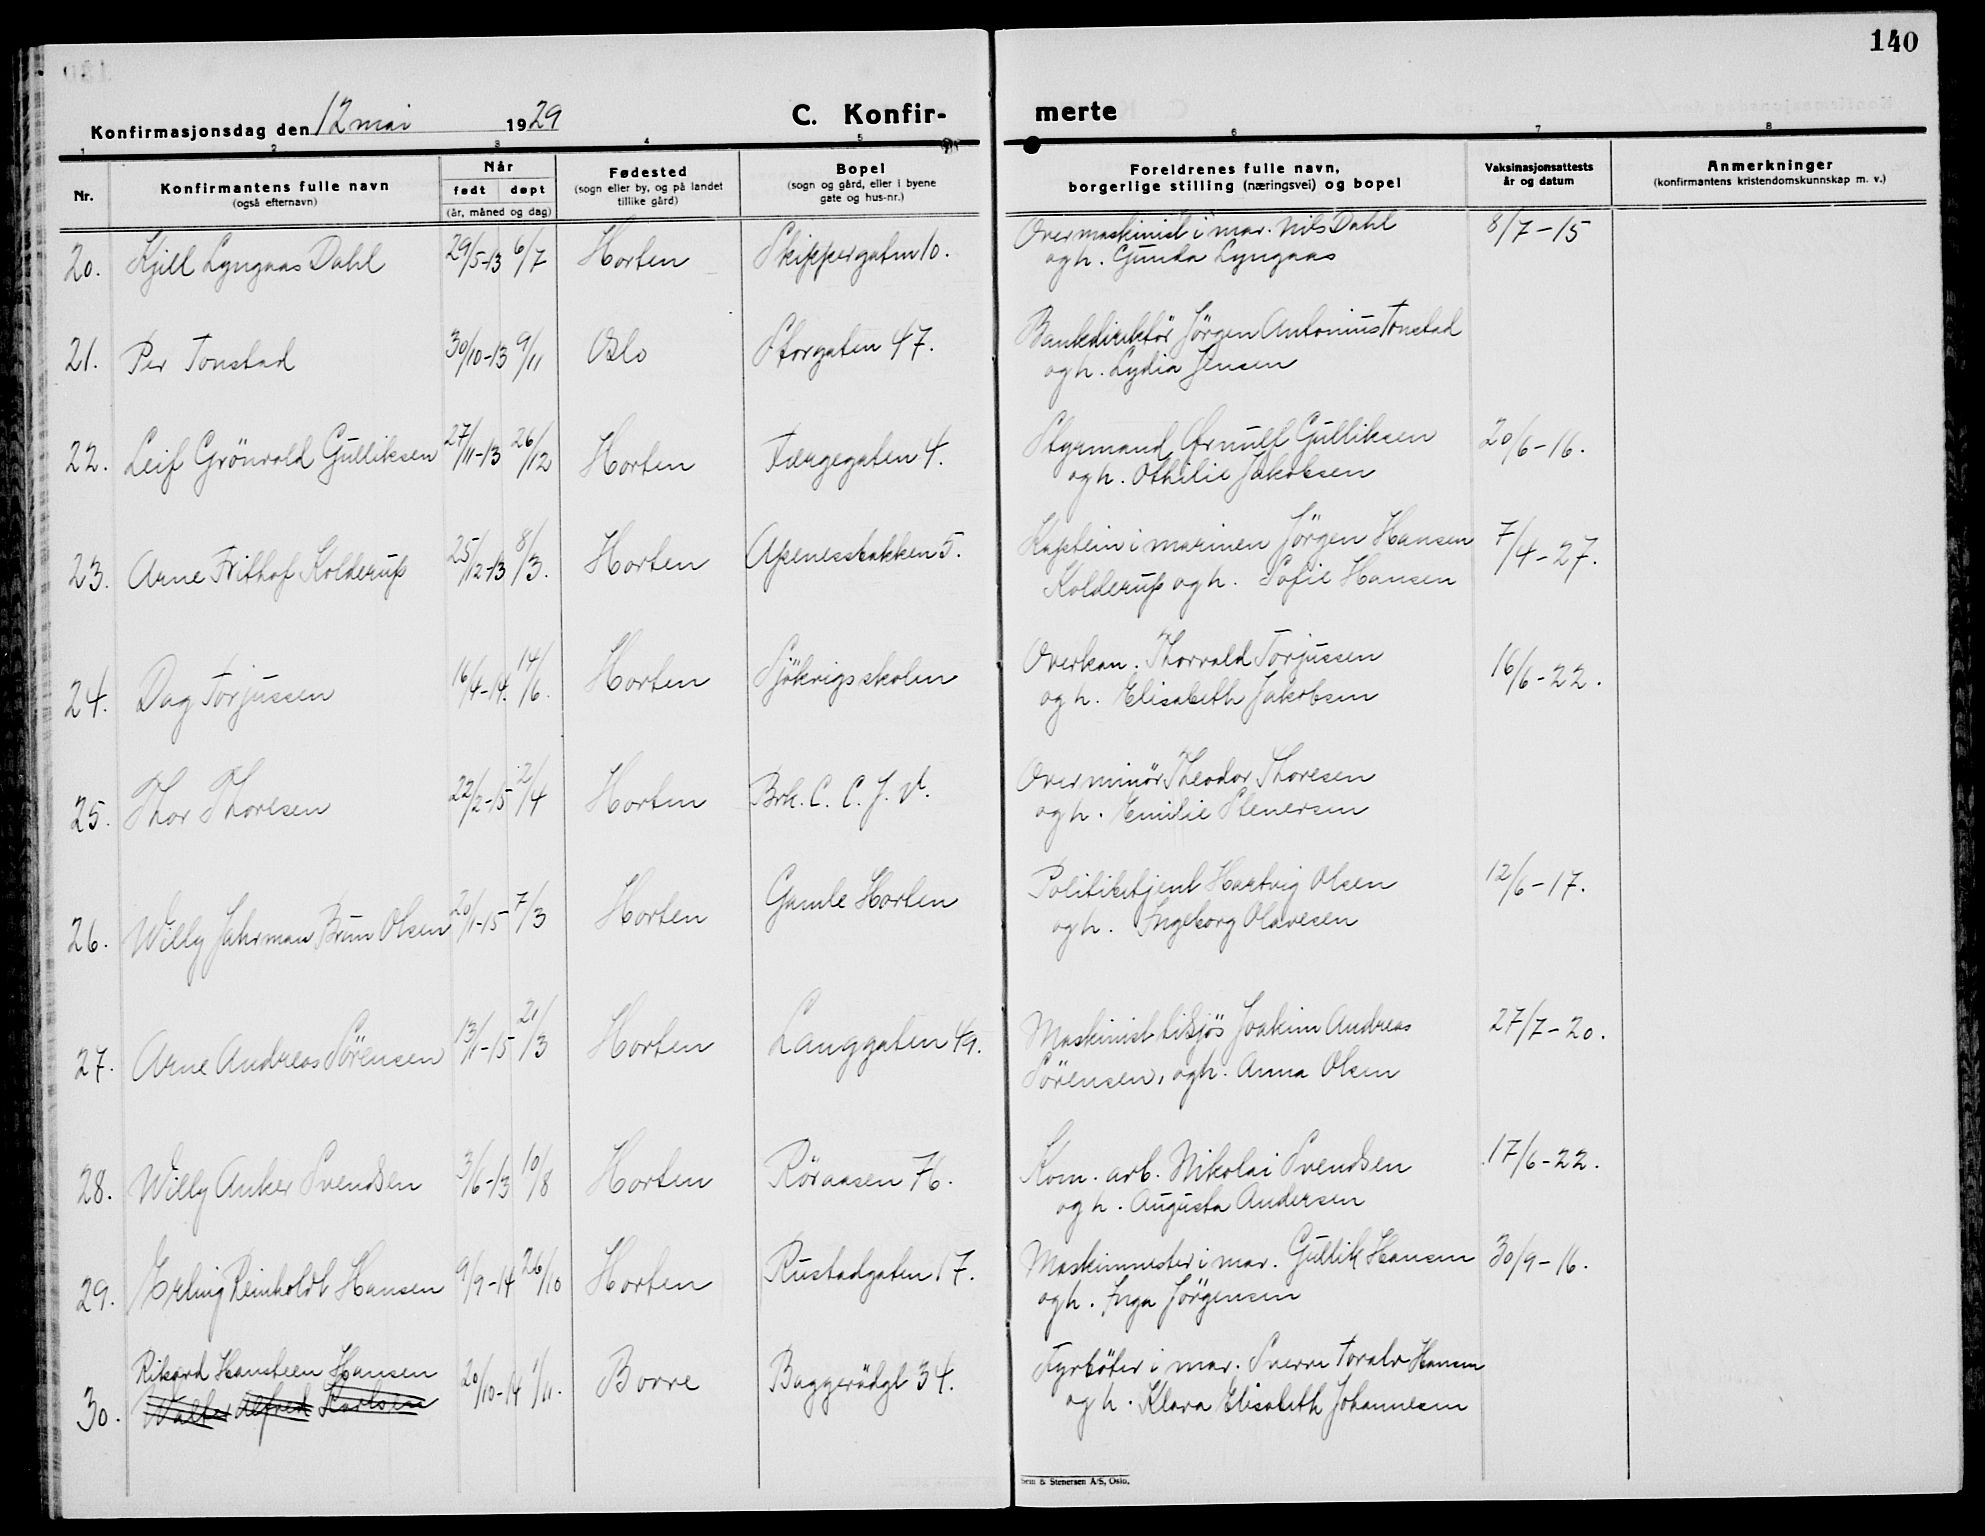 140
Konfirmasjonsdag den 12 mai 1929
C. Konfir-
merte
1 2 3 4 5 6 7 8
Nr.
Konfirmantens fulle navn
(også efternavn)
Når
født døpt
(år, måned og dag)
Fødested
(sogn eller by, og på landet
tillike gård)
Bopel
(sogn og gård, eller i byene
gate og hus-nr.)
Foreldrenes fulle navn,
borgerlige stilling (næringsvei) og bopel
Vaksinasjonsattests
år og datum
Anmerkninger
(konfirmantens kristendomskunnskap m. v.)
20. Kjell Lyngaas Dahl 29/5-13 6/7 Horten Skippergaten 10. Overmaskinist i mar. Nils Dahl 8/7-15
og h. Gunda Lyngaas
21. Per Tonstad 30/10-13 9/11 Oslo Storgaten 47. Bankdirektör Jörgen Antonius Tonstad
og h. Lydia Jensen
22. Leif Grönvold Gulliksen 27/11-13 26/12 Horten Færgegaten 4. Styrmand Ørnulf Gulliksen 20/6-16.
og h. Othilie Jakobsen
23. Arne Frithof Kolderup 25/12-13 8/3. Horten Apenesbakken 5. Kaptein i marinen Jörgen Hansen 7/4-27.
Kolderup og h. Sofie Hansen
24. Dag Torjussen 16/4-14. 14/6. Horten Sjökrigsskolen Overkan. Thorvald Torjussen 16/6-22.
og h. Elisabeth Jakobsen
25. Thor Thoresen 22/2-15 2/4 Horten Brk. C. C. J. V. Overminör Theodor Thoresen
og h. Emilie Stenersen
26. Willy Jahrman Brun Olsen 20/1-15 7/3 Horten Gamle Horten Politibetjent Hartvig Olsen 12/6-17.
og h. Ingeborg Olavesen
27. Arne Andreas Sörensen 13/1-15 21/3 Horten Langgaten 49. Maskinist tilsjös Joakim Andreas 27/7-20.
Sörensen, og h. Anna Olsen
28. Willy Anker Svendsen 3/6-13 10/8 Horten Røraasen 76. Kom. arb. Nikolai Svendsen 17/6-22.
og h. Augusta Andersen
29. Erling Reinholdt Hansen 9/9-14 26/10 Horten Rustadgaten 17. Maskinmester i mar. Gullik Hansen 30/9-16.
og h. Inga Jörgensen
Rikard Hansteen Hansen
30. Walter Alfred Karlsen 20/10-14 1/11. Borre Baggerödgt 34. Fyrböter i mar. Sverre Toralv Hansen
og h. Klara Elisabeth Johannesen
Sem & Stenersen A/S, Oslo.